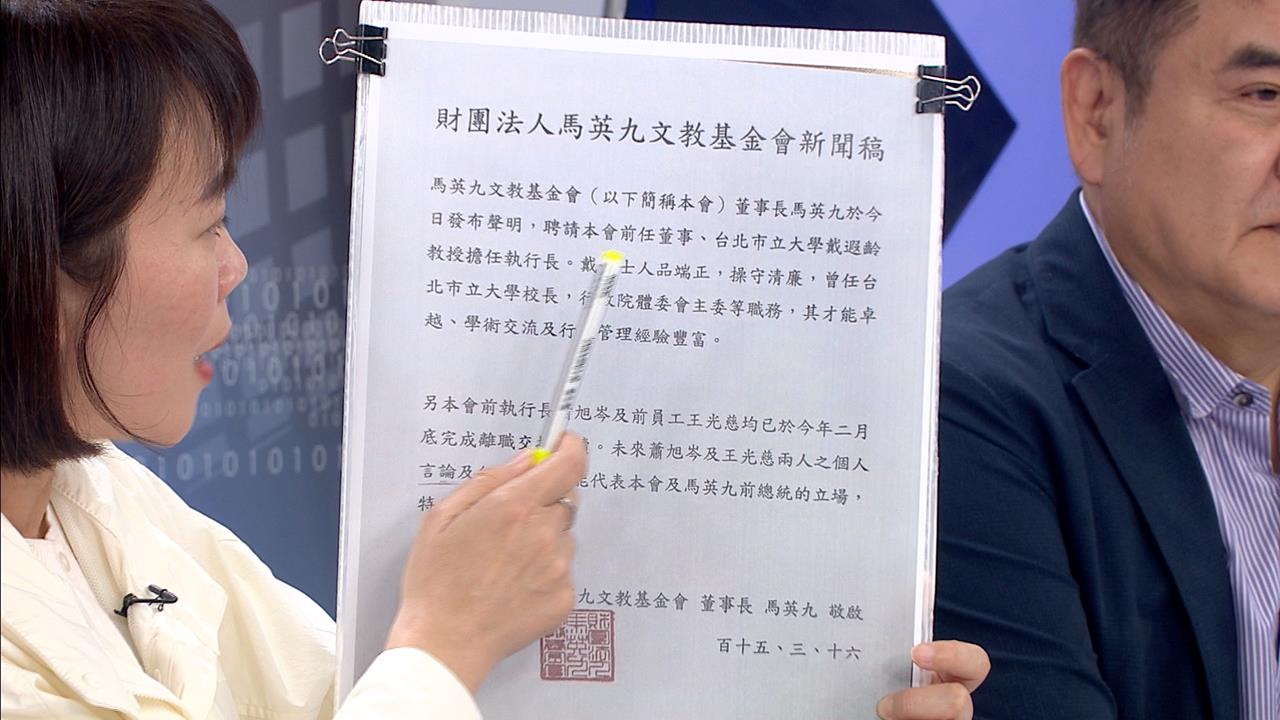 財團法人馬英九文教基金會新聞稿
馬英九文教基金會（以下簡稱本會）董事長馬英九於今
日發布聲明，聘請本會前任董事、台北市立大學戴遐齡
教授擔任執行長。戴 士人品端正，操守清廉，曾任台
北市立大學校長，行政院體委會主委等職務，其才能卓
越、學術交流及行 管理經驗豐富。
另本會前執行長 旭岑及前員工王光慈均已於今年二月
底完成離職交 。未來蕭旭岑及王光慈兩人之個人
言論及 代表本會及馬英九前總統的立場，
特
九文教基金會 董事長 馬英九 敬啟
百十五、三、十六